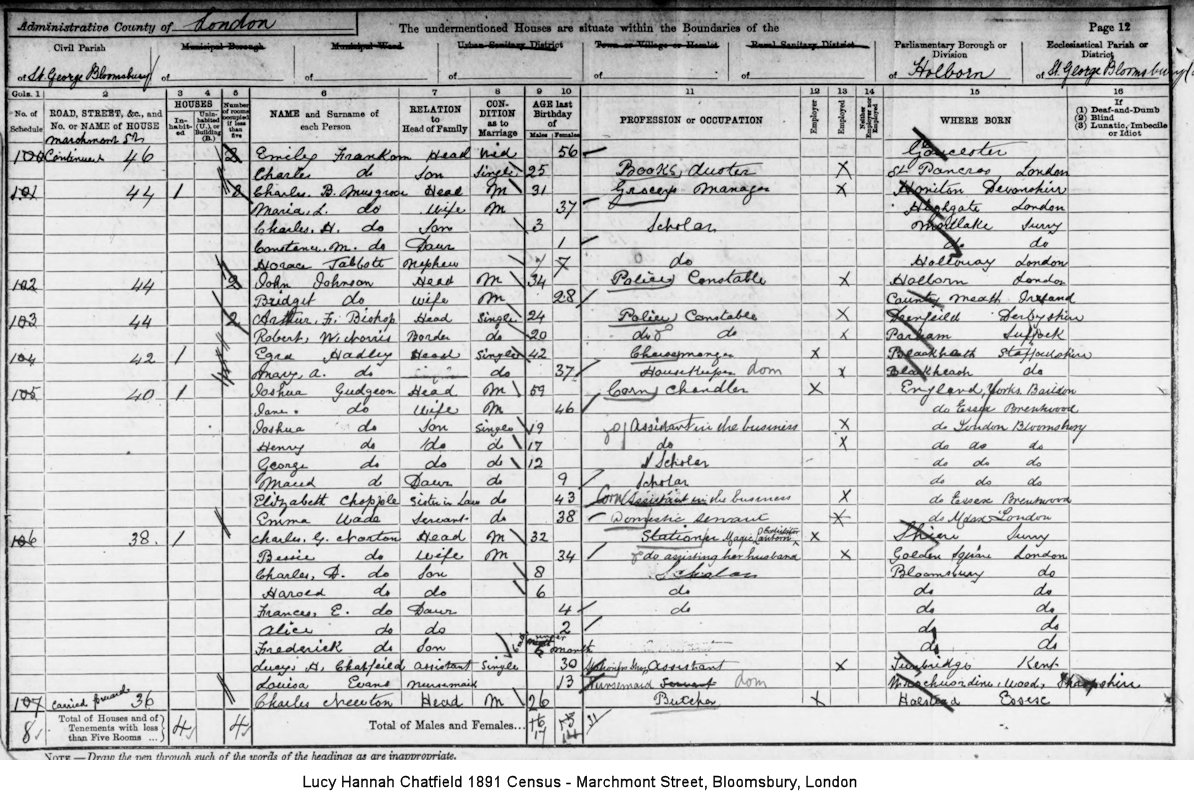 Administrative County of London The undermentioned Houses are situate within the Boundaries of the Page 12
Civil Parish Municipal Borough Municipal Ward Urban Sanitary District Town or Village or Hamlet Rural Sanitary District Parliamentary Borough or Division Ecclesiastical Parish or District
of St. George Bloomsbury of of of of of of Holborn of St. George Bloomsbury
Cols. 1 2 3 4 5 6 7 8 9 10 11 12 13 14 15 16
No. of Schedule ROAD, STREET, &c., and No. or NAME of HOUSE HOUSES Inhabited Uninhabited (U.) or Building (B.) Number of rooms occupied if less than five NAME and Surname of each Person RELATION to Head of Family CONDITION as to Marriage AGE last Birthday of Males Females PROFESSION or OCCUPATION Employer Employed Neither Employer nor Employed WHERE BORN If (1) Deaf-and-Dumb (2) Blind (3) Lunatic, Imbecile or Idiot
Marchmont St
100 Continued 46 2 Emily Frankom Head Wid 56 Gloucester
Charles do Son Single 25 Books duster X St Pancras London
101 44 1 Charles B. Musgrove Head M 31 Grocers Manager X Honiton Devonshire
Maria L. do Wife M 37 Highgate London
Charles. H. do Son 3 Scholar Mortlake Surry
Constance. M. do Daur 1 do do
Horace Tabbott Nephew 7 do Holloway London
102 44 2 John Johnson Head M 34 Police Constable X Holborn London
Bridget do Wife M 28 County Meath Ireland
103 44 2 Arthur. F. Bishop Head Single 24 Police Constable X Derbyshire
Robert. W. Norris Border do 20 do do X Parham Suffock
104 42 1 Ezra Hadley Head Single 42 Cheesemonger X Blackheath Staffordshire
Mary A. do do 37 Housekeeper dom X Blackheath do
105 40 1 Joshua Gudgeon Head M 59 Corn Chandler X England, Yorks
Jane. do Wife M 46 do Essex Brentwood
Joshua do Son Single 19 Assistant in the business X do London Bloomsbury
Henry do do do 17 do X do do do
George do do do 12 Scholar do do do
Maud do Daur do 9 Scholar do do do
Elizabeth Chopple Sister in Law do 43 Corn Assistant in the business X do Essex Brentwood
Emma Wade Servant do 38 Domestic Servant X do Mdsx London
106 38. 1 Charles. G. Norton Head M 32 Stationer Magic Lantern X Shiere Surry
Bessie do Wife M 34 do assisting her husband X Golden Square London
Charles. D. do Son 8 Scholar Bloomsbury do
Harold do do 6 do do do
Frances. E. do Daur 4 do do do
Alice do do 2 do do
Frederick do Son 6 month do do
Lucy. H. Chatfield assistant Single 30 Assistant X Tunbridge Kent
Louisa Evans nursemaid 13 Nursemaid Servant dom Shropshire
107 carried forward 36 Charles Newton Head M 26 Butcher X Halstead Essex
8 Total of Houses and of Tenements with less than Five Rooms ... 4 4 Total of Males and Females... 17 14 31
NOTE.—Draw the pen through such of the words of the headings as are inappropriate.
Lucy Hannah Chatfield 1891 Census - Marchmont Street, Bloomsbury, London